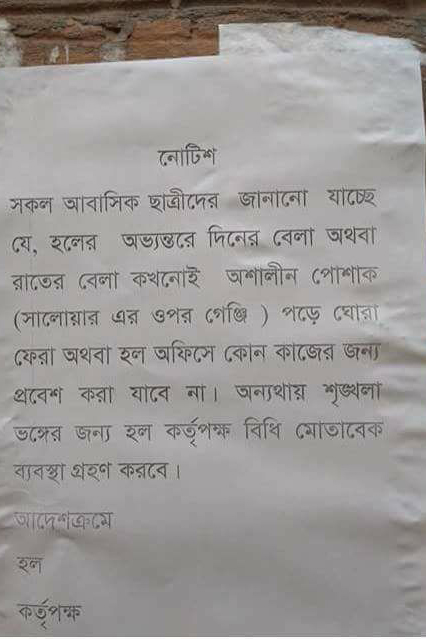 নোটিশ
সকল আবাসিক ছাত্রীদের জানানো যাচ্ছে
যে, হলের অভ্যন্তরে দিনের বেলা অথবা
রাতের বেলা কখনোই অশালীন পোশাক
(সালোয়ার এর ওপর গেঞ্জি ) পড়ে ঘোরা
ফেরা অথবা হল অফিসে কোন কাজের জন্য
প্রবেশ করা যাবে না। অন্যথায় শৃঙ্খলা
ভঙ্গের জন্য হল কর্তৃপক্ষ বিধি মোতাবেক
ব্যবস্থা গ্রহণ করবে।
আদেশক্রমে
হল
কর্তৃপক্ষ